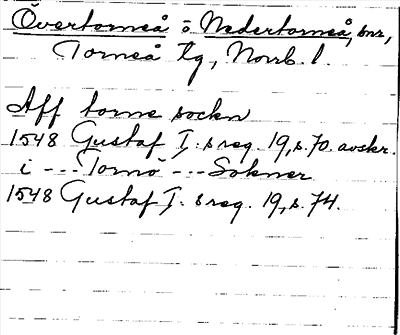 Övertorneå o Nedertorneå, snr,
Torneå tg, Norrb. l.
Aff torne sockn
1548 Gustaf I:s reg. 19, s. 70. avskr.
i --- Tornö --- Soknner
1548 Gustaf I:s reg. 19, s. 74.